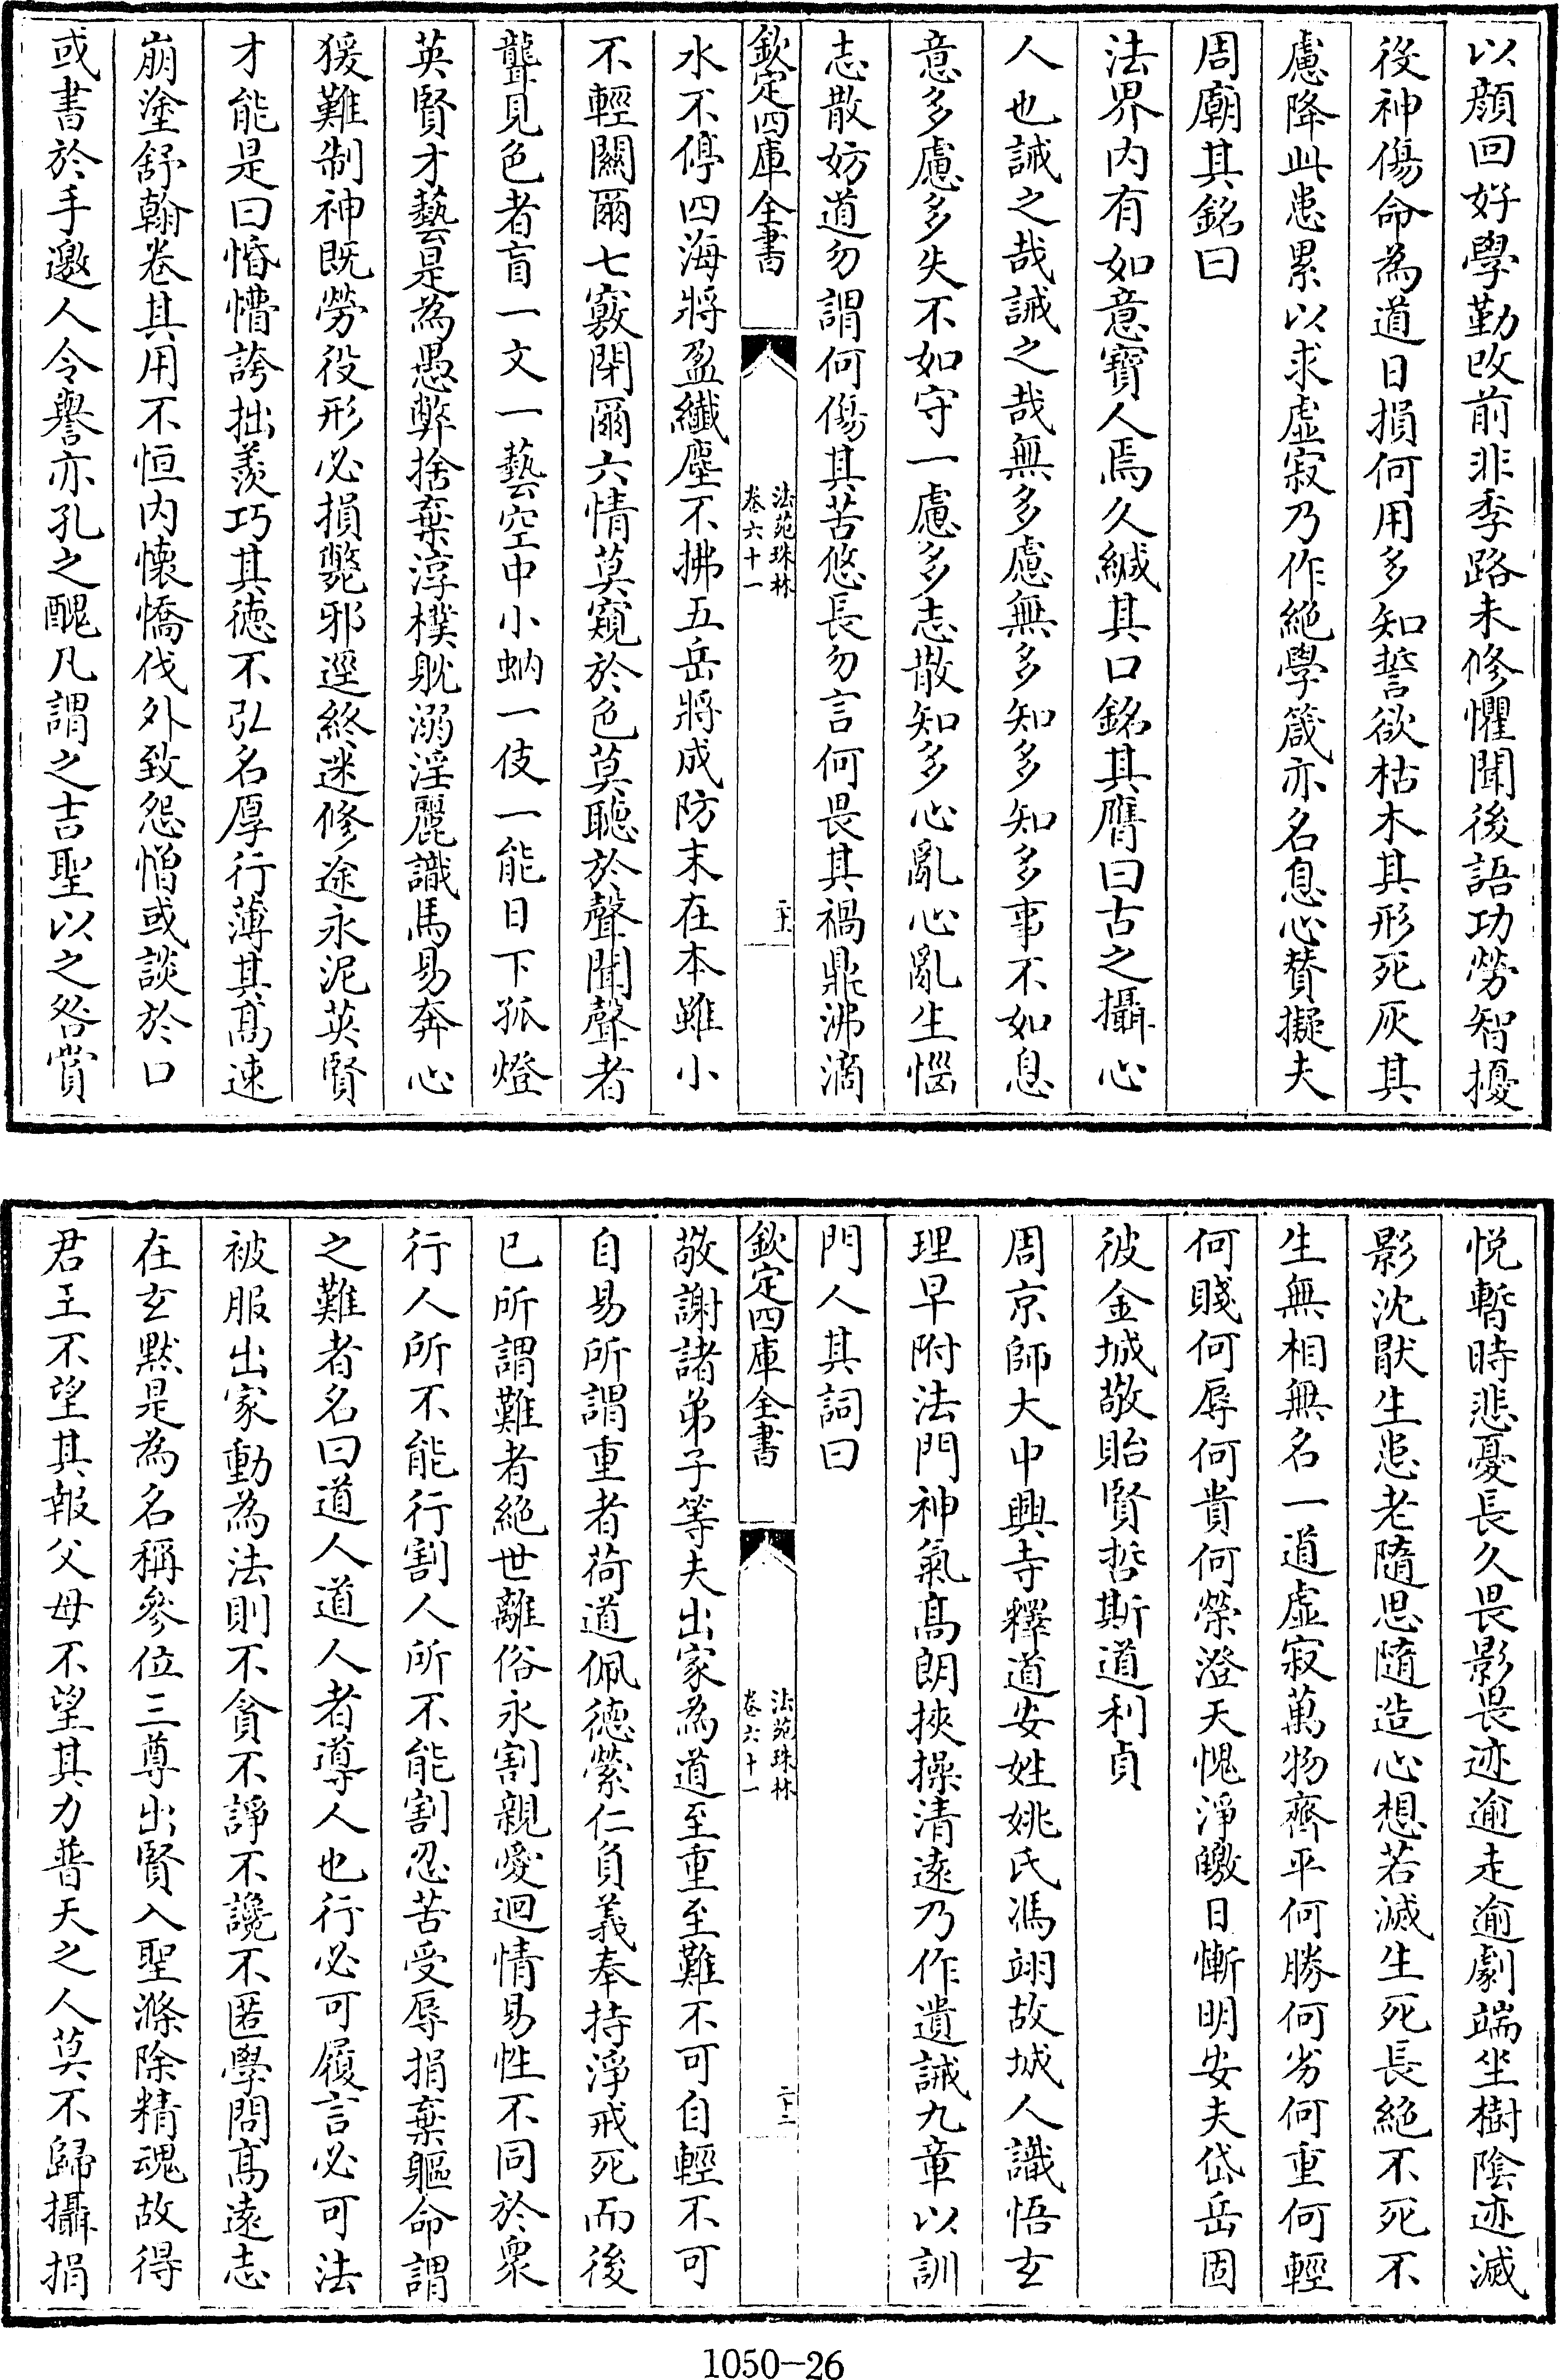 以顔回好學勤改前非季路未修懼聞後語功勞智擾
役神傷命為道日損何用多知誓欲枯木其形死灰其
慮降此患累以求虛寂乃作絶學箴亦名息心賛擬夫
周廟其銘曰
法界内有如意寶人焉久緘其口銘其膺曰古之攝心
人也誡之哉誡之哉無多慮無多知多知多事不如息
意多慮多失不如守一慮多志散知多心亂心亂生惱
志散妨道勿謂何傷其苦悠長勿言何畏其禍鼎沸滴
欽定四庫全書
法苑珠林
卷六十一
二十一
水不停四海將盈纎塵不拂五岳將成防末在本雖小
不輕關爾七竅閉爾六情莫窺於色莫聽於聲聞聲者
聾見色者盲一文一藝空中小蚋一伎一能日下孤燈
英賢才藝是為愚弊捨棄淳樸躭溺淫麗識馬易奔心
猨難制神既勞役形必損斃邪逕終迷修途永泥英賢
才能是曰惛懵誇拙羨巧其徳不弘名厚行薄其髙速
崩塗舒翰卷其用不恒内懐憍伐外致怨憎或談於口
或書於手邀人令譽亦孔之醜凡謂之吉聖以之咎賞
悦暫時悲憂長久畏影畏迹逾走逾劇端坐樹隂迹滅
影沈厭生患老隨思隨造心想若滅生死長絶不死不
生無相無名一道虛寂萬物齊平何勝何劣何重何輕
何賤何辱何貴何榮澄天愧淨皦日慚明安夫岱岳固
彼金城敬貽賢哲斯道利貞
周京師大中興寺釋道安姓姚氏馮翊故城人識悟玄
理早附法門神氣髙朗挾操清逺乃作遺誡九章以訓
門人其詞曰
欽定四庫全書
法苑珠林
卷六十一
二十二
敬謝諸弟子等夫出家為道至重至難不可自輕不可
自易所謂重者荷道佩徳縈仁負義奉持淨戒死而後
已所謂難者絶世離俗永割親愛迴情易性不同於衆
行人所不能行割人所不能割忍苦受辱捐棄軀命謂
之難者名曰道人道人者導人也行必可履言必可法
被服出家動為法則不貪不諍不讒不匿學問髙逺志
在玄黙是為名稱參位三尊出賢入聖滌除精魂故得
君王不望其報父母不望其力普天之人莫不歸攝捐
1050-26